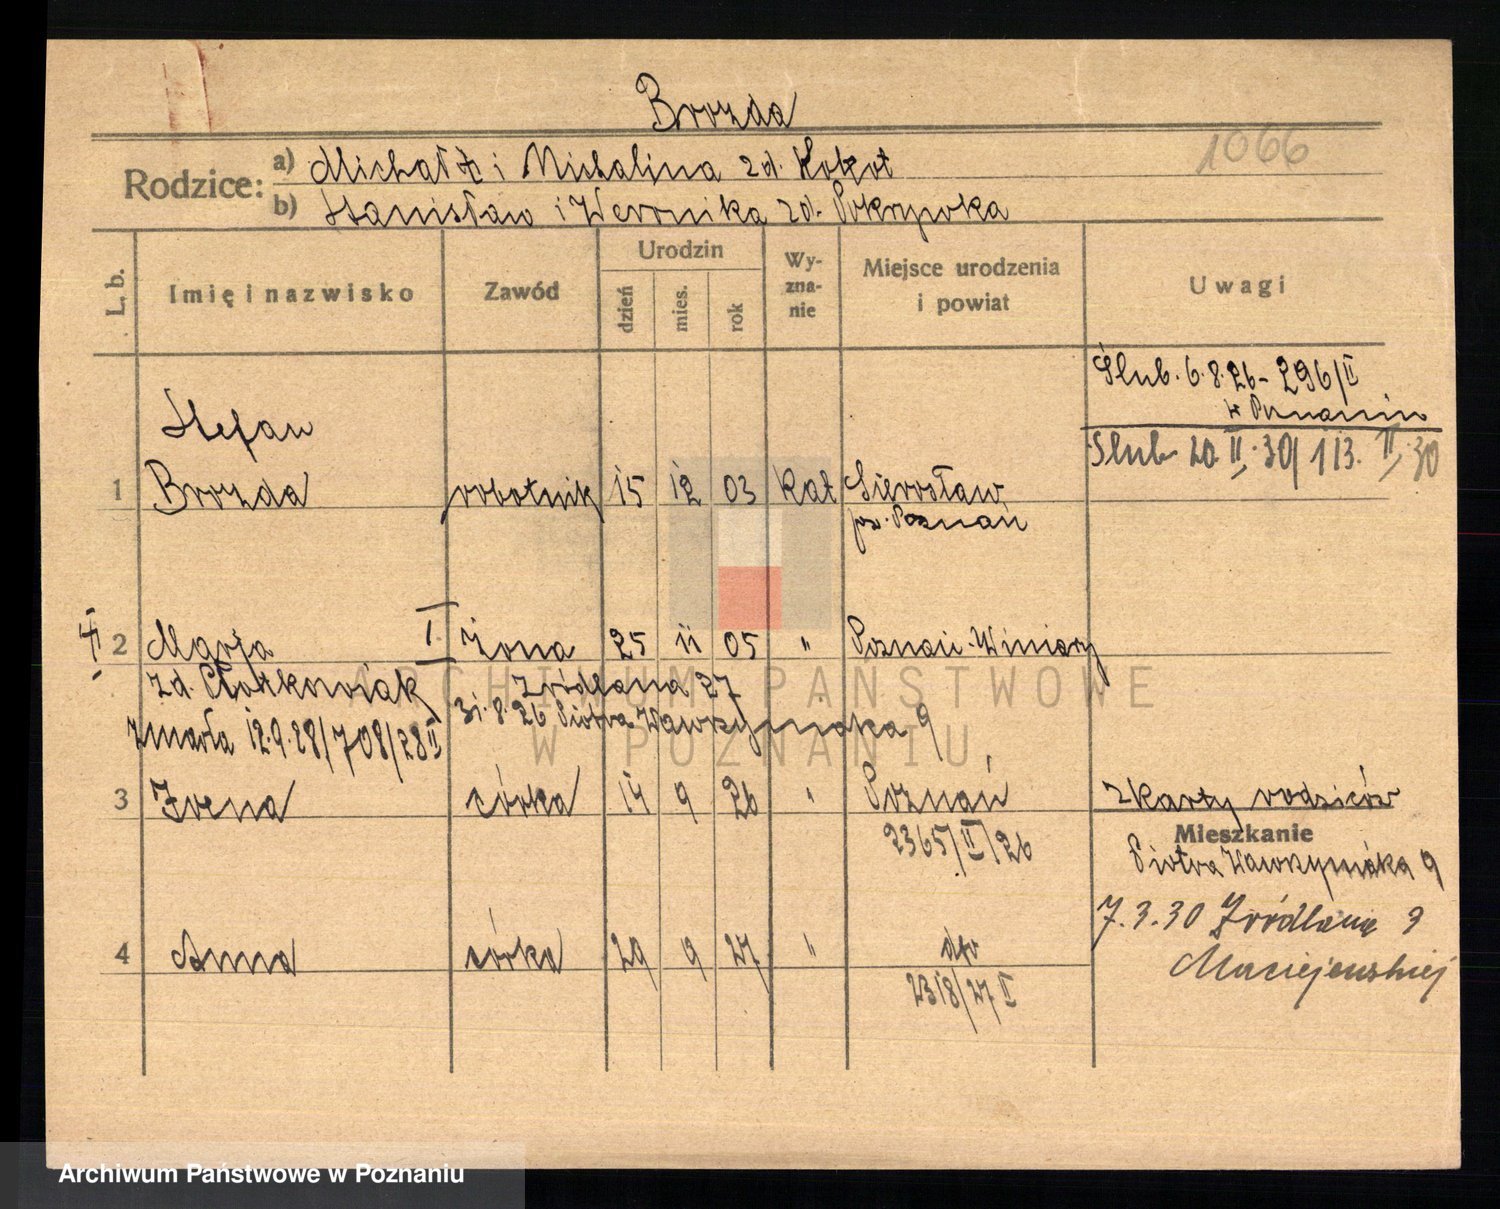 Brozda
1066
Rodzice: a) Michał i Michalina zd. Kokot
b) Stanisław i Weronika zd. Pokrywka
L. b.
Imię i nazwisko
Zawód
Urodzin
dzień
mies.
rok
Wy-
zna-
nie
Miejsce urodzenia
i powiat
Uwagi
Ślub. 6.8.26 - 296/II
w Poznaniu
Ślub 20.II.30/113.II.30
Stefan
1 Brozda robotnik 15 12 03 kat Sierosław
pow. Poznań
2 Marja I. żona 25 11 05 " Poznań-Winiary
zd.
Źródlana 27
zmarła 12.9.28/708/28 II
31.8.26 Piotra Wawrzyniaka 9
3 Irena córka 14 9 26 " Poznań z karty rodziców
2365/II/26
Mieszkanie
Piotra Wawrzyniaka 9
7.3.30 Źródlana 9
4 Anna córka 29 9 27 " dto
Maciejewskiej
2318/27 II
ARCHIWUM PAŃSTWOWE
W POZNANIU
Archiwum Państwowe w Poznaniu